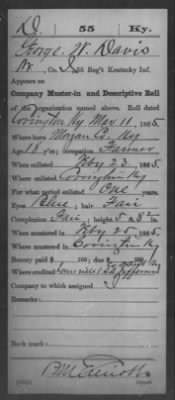 D | 55 | Ky.
George W. Davis
Pvt., Co. I, 55 Reg't Kentucky Inf.
Appears on
Company Muster-in and Descriptive Roll
of the organization named above. Roll dated
Covington Ky May 11, 1865
Where born Morgan Co Ky
Age 18 y'rs; occupation Farmer
When enlisted Feby 23, 1865
Where enlisted Covington Ky
For what period enlisted One years.
Eyes Blue; hair Fair
Complexion Fair; height 5 ft. 8½ in.
When mustered in Feby 25, 1865
Where mustered in Covington Ky
Bounty paid $ 100; due $ 100
Where credited
Company to which assigned
Remarks:
Book mark:
Copyist.